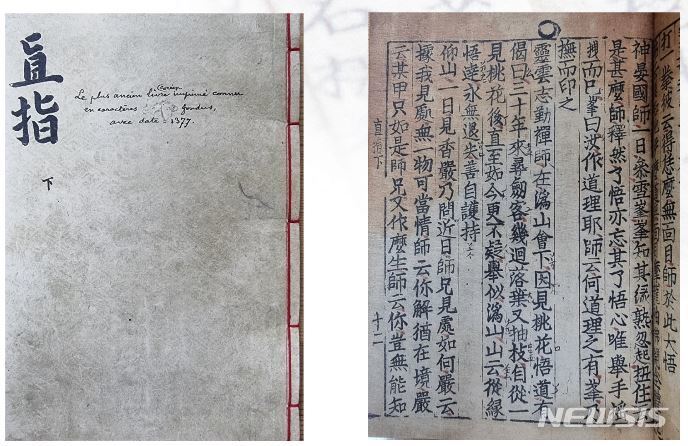 直指
下
Coréen
Le plus ancien livre imprimé connu
en caractères fondus,
avec date = 1377.
云得恁麽無面目師於此大悟
神晏國師一日叅雪峯峯知其緣熟忽起扭住云
是甚麽師釋然了悟亦忘其了悟心唯擧手搖
拽而已峯曰汝作道理耶師云何道理之有峯乃
撫而印之
靈雲志勤禪師在潙山會下因見桃花悟道有
偈曰三十年來尋劒客幾迴落葉又抽枝自從一
見桃花後直至如今更不疑擧似潙山山云從緣
悟達永無退失善自護持
仰山一日見香嚴乃問近日師兄見處如何嚴云
據我見處無一物可當情師云你解猶在境嚴
云某甲只如是師兄又作麽生師云你豈無能知
直指下
十二
NEWSIS